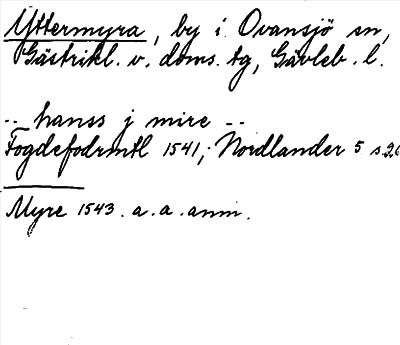 Yttermyra, by i Ovansjö sn,
Gästrikl. v. doms. tg, Gävleb. l.
-- hanss j mire --
Fogdefodrmtl 1541; Nordlander 5 s.26
Myre 1543. a. a. anm.